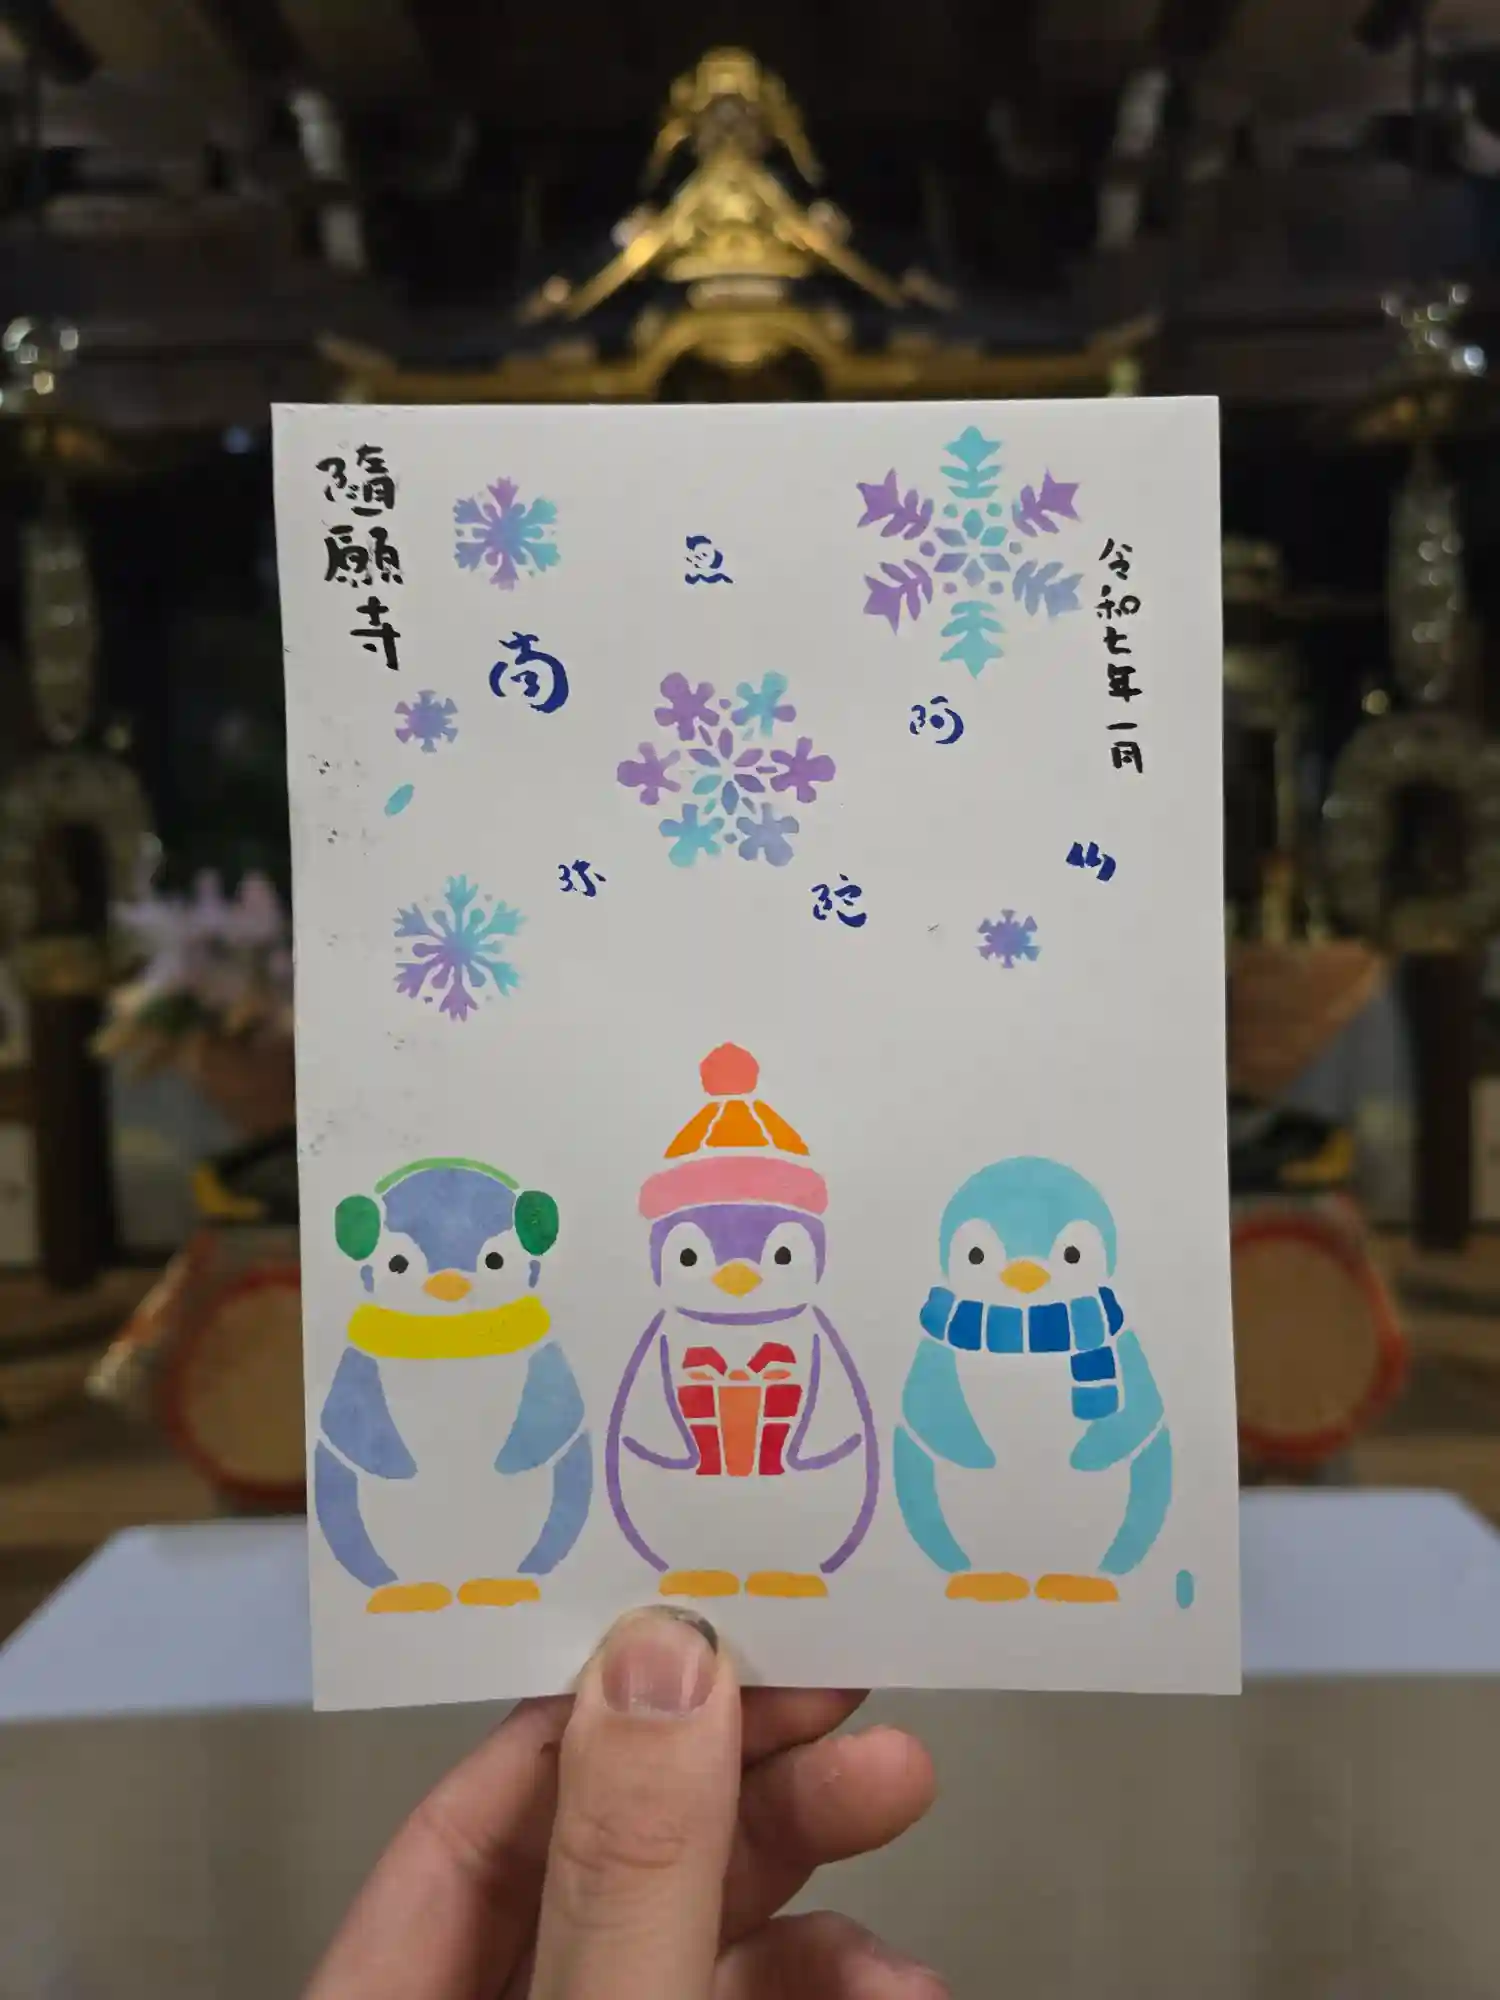 令和七年一月
南
無
阿
弥
陀
仏
隨願寺